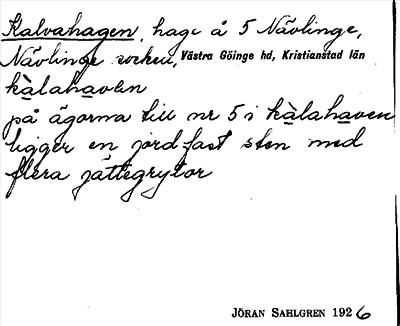 Kalvahagen, hage å 5 Nävlinge,
Nävlinge socken, Västra Göinge hd, Kristianstad län
kàlahaven
på ägorna till nr 5 i kàlahaven
ligger en jordfast sten med
flera jättegrytor
JÖRAN SAHLGREN 1926